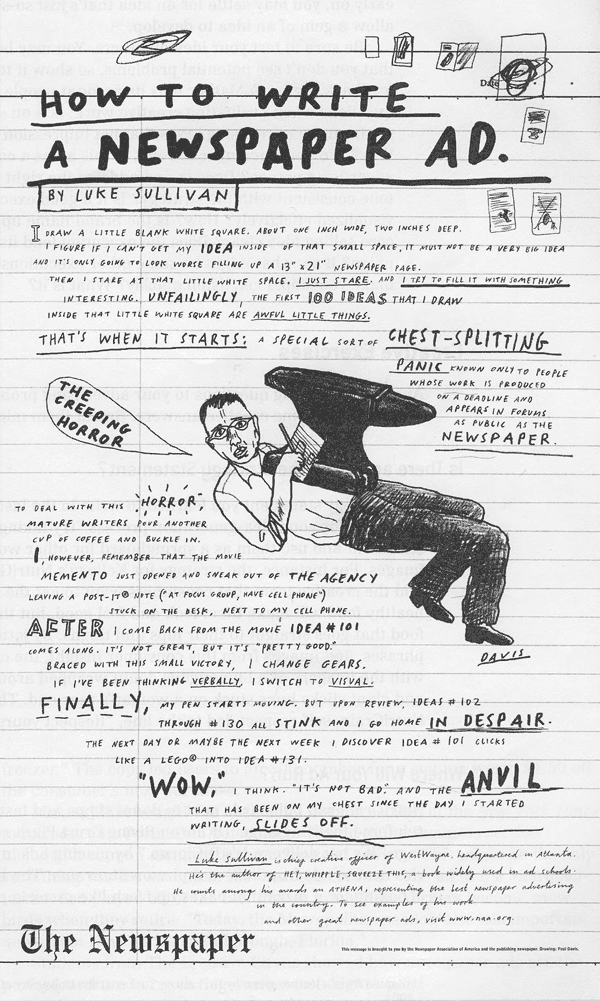 Date
HOW TO WRITE
A NEWSPAPER AD.
BY LUKE SULLIVAN
I DRAW A LITTLE BLANK WHITE SQUARE. ABOUT ONE INCH WIDE, TWO INCHES DEEP.
I FIGURE IF I CAN'T GET MY IDEA INSIDE OF THAT SMALL SPACE, IT MUST NOT BE A VERY BIG IDEA
AND IT'S ONLY GOING TO LOOK WORSE FILLING UP A 13" x 21" NEWSPAPER PAGE.
THEN I STARE AT THAT LITTLE WHITE SPACE. I JUST STARE. AND I TRY TO FILL IT WITH SOMETHING
INTERESTING. UNFAILINGLY, THE FIRST 100 IDEAS THAT I DRAW
INSIDE THAT LITTLE WHITE SQUARE ARE AWFUL LITTLE THINGS.
THAT'S WHEN IT STARTS: A SPECIAL SORT OF CHEST-SPLITTING
PANIC KNOWN ONLY TO PEOPLE
WHOSE WORK IS PRODUCED
ON A DEADLINE AND
APPEARS IN FORUMS
AS PUBLIC AS THE
NEWSPAPER.
THE
CREEPING
HORROR
TO DEAL WITH THIS "HORROR",
MATURE WRITERS POUR ANOTHER
CUP OF COFFEE AND BUCKLE IN.
I, HOWEVER, REMEMBER THAT THE MOVIE
MEMENTO JUST OPENED AND SNEAK OUT OF THE AGENCY
LEAVING A POST-IT® NOTE ("AT FOCUS GROUP, HAVE CELL PHONE")
STUCK ON THE DESK, NEXT TO MY CELL PHONE.
AFTER I COME BACK FROM THE MOVIE IDEA #101
COMES ALONG. IT'S NOT GREAT, BUT IT'S "PRETTY GOOD."
BRACED WITH THIS SMALL VICTORY, I CHANGE GEARS.
IF I'VE BEEN THINKING VERBALLY, I SWITCH TO VISUAL.
DAVIS
FINALLY, MY PEN STARTS MOVING. BUT UPON REVIEW, IDEAS #102
THROUGH #130 ALL STINK AND I GO HOME IN DESPAIR.
THE NEXT DAY OR MAYBE THE NEXT WEEK I DISCOVER IDEA # 101 CLICKS
LIKE A LEGO® INTO IDEA #131.
"WOW," I THINK. "IT'S NOT BAD." AND THE ANVIL
THAT HAS BEEN ON MY CHEST SINCE THE DAY I STARTED
WRITING, SLIDES OFF.
Luke Sullivan is chief creative officer of WestWayne, headquartered in Atlanta.
He's the author of HEY, WHIPPLE, SQUEEZE THIS, a book widely used in ad schools.
He counts among his awards an ATHENA, representing the best newspaper advertising
in the country. To see examples of his work
and other great newspaper ads, visit www.naa.org.
The Newspaper
This message is brought to you by the Newspaper Association of America and the publishing newspaper. Drawing: Paul Davis.